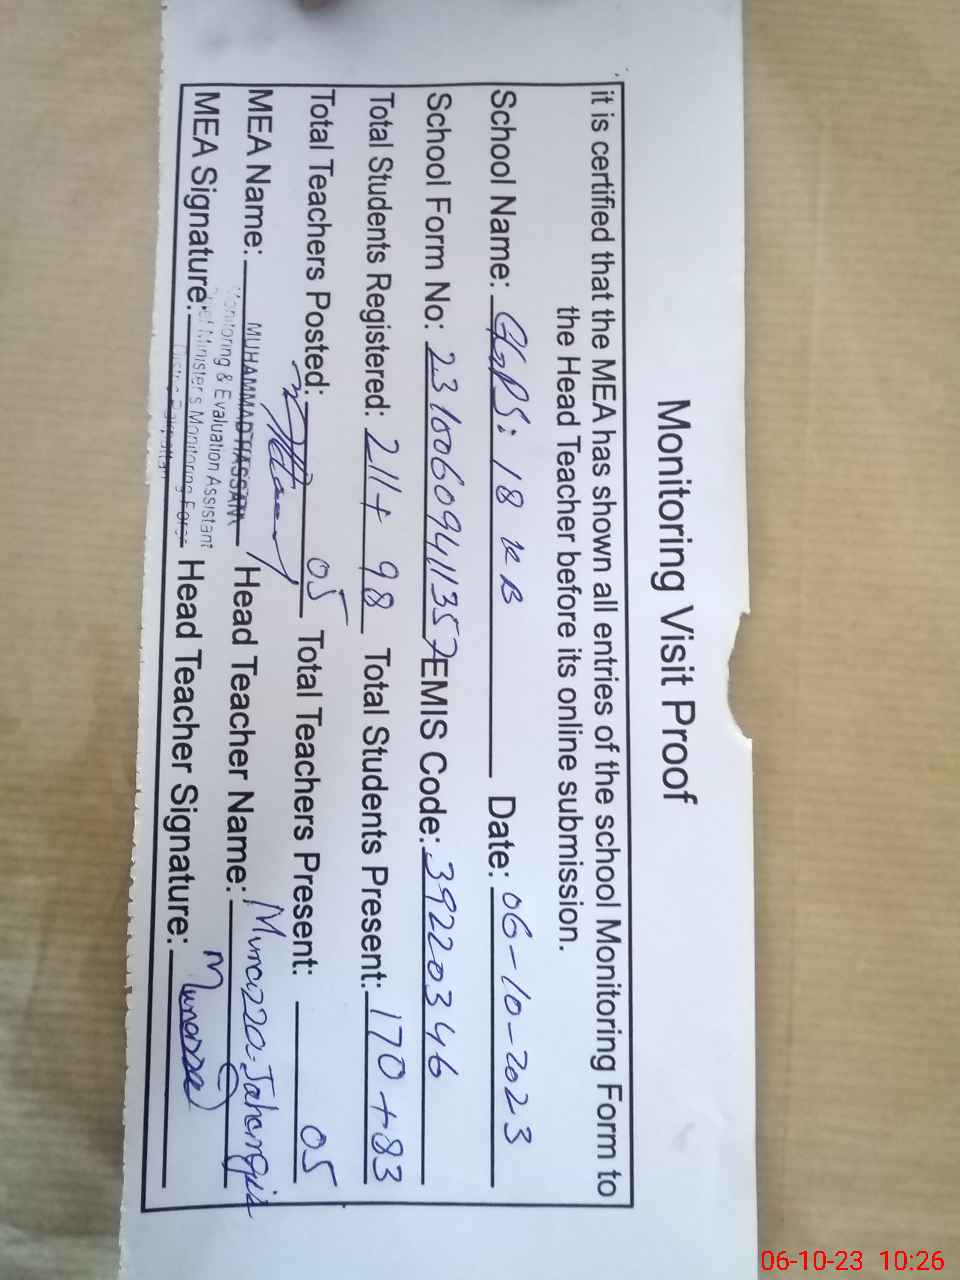 Monitoring Visit Proof
it is certified that the MEA has shown all entries of the school Monitoring Form to
the Head Teacher before its online submission.
School Name: GGPS: 18 KB Date: 06-10-2023
School Form No: 23100609411357 EMIS Code: 39220346
Total Students Registered: 211+ 98 Total Students Present: 170+83
Total Teachers Posted: 05 Total Teachers Present: 05
MEA Name: MUHAMMAD HASSAN Head Teacher Name: Munazza Jahangir
Monitoring & Evaluation Assistant
Chief Minister's Monitoring Force
MEA Signature: Head Teacher Signature: Munazza
06-10-23 10:26